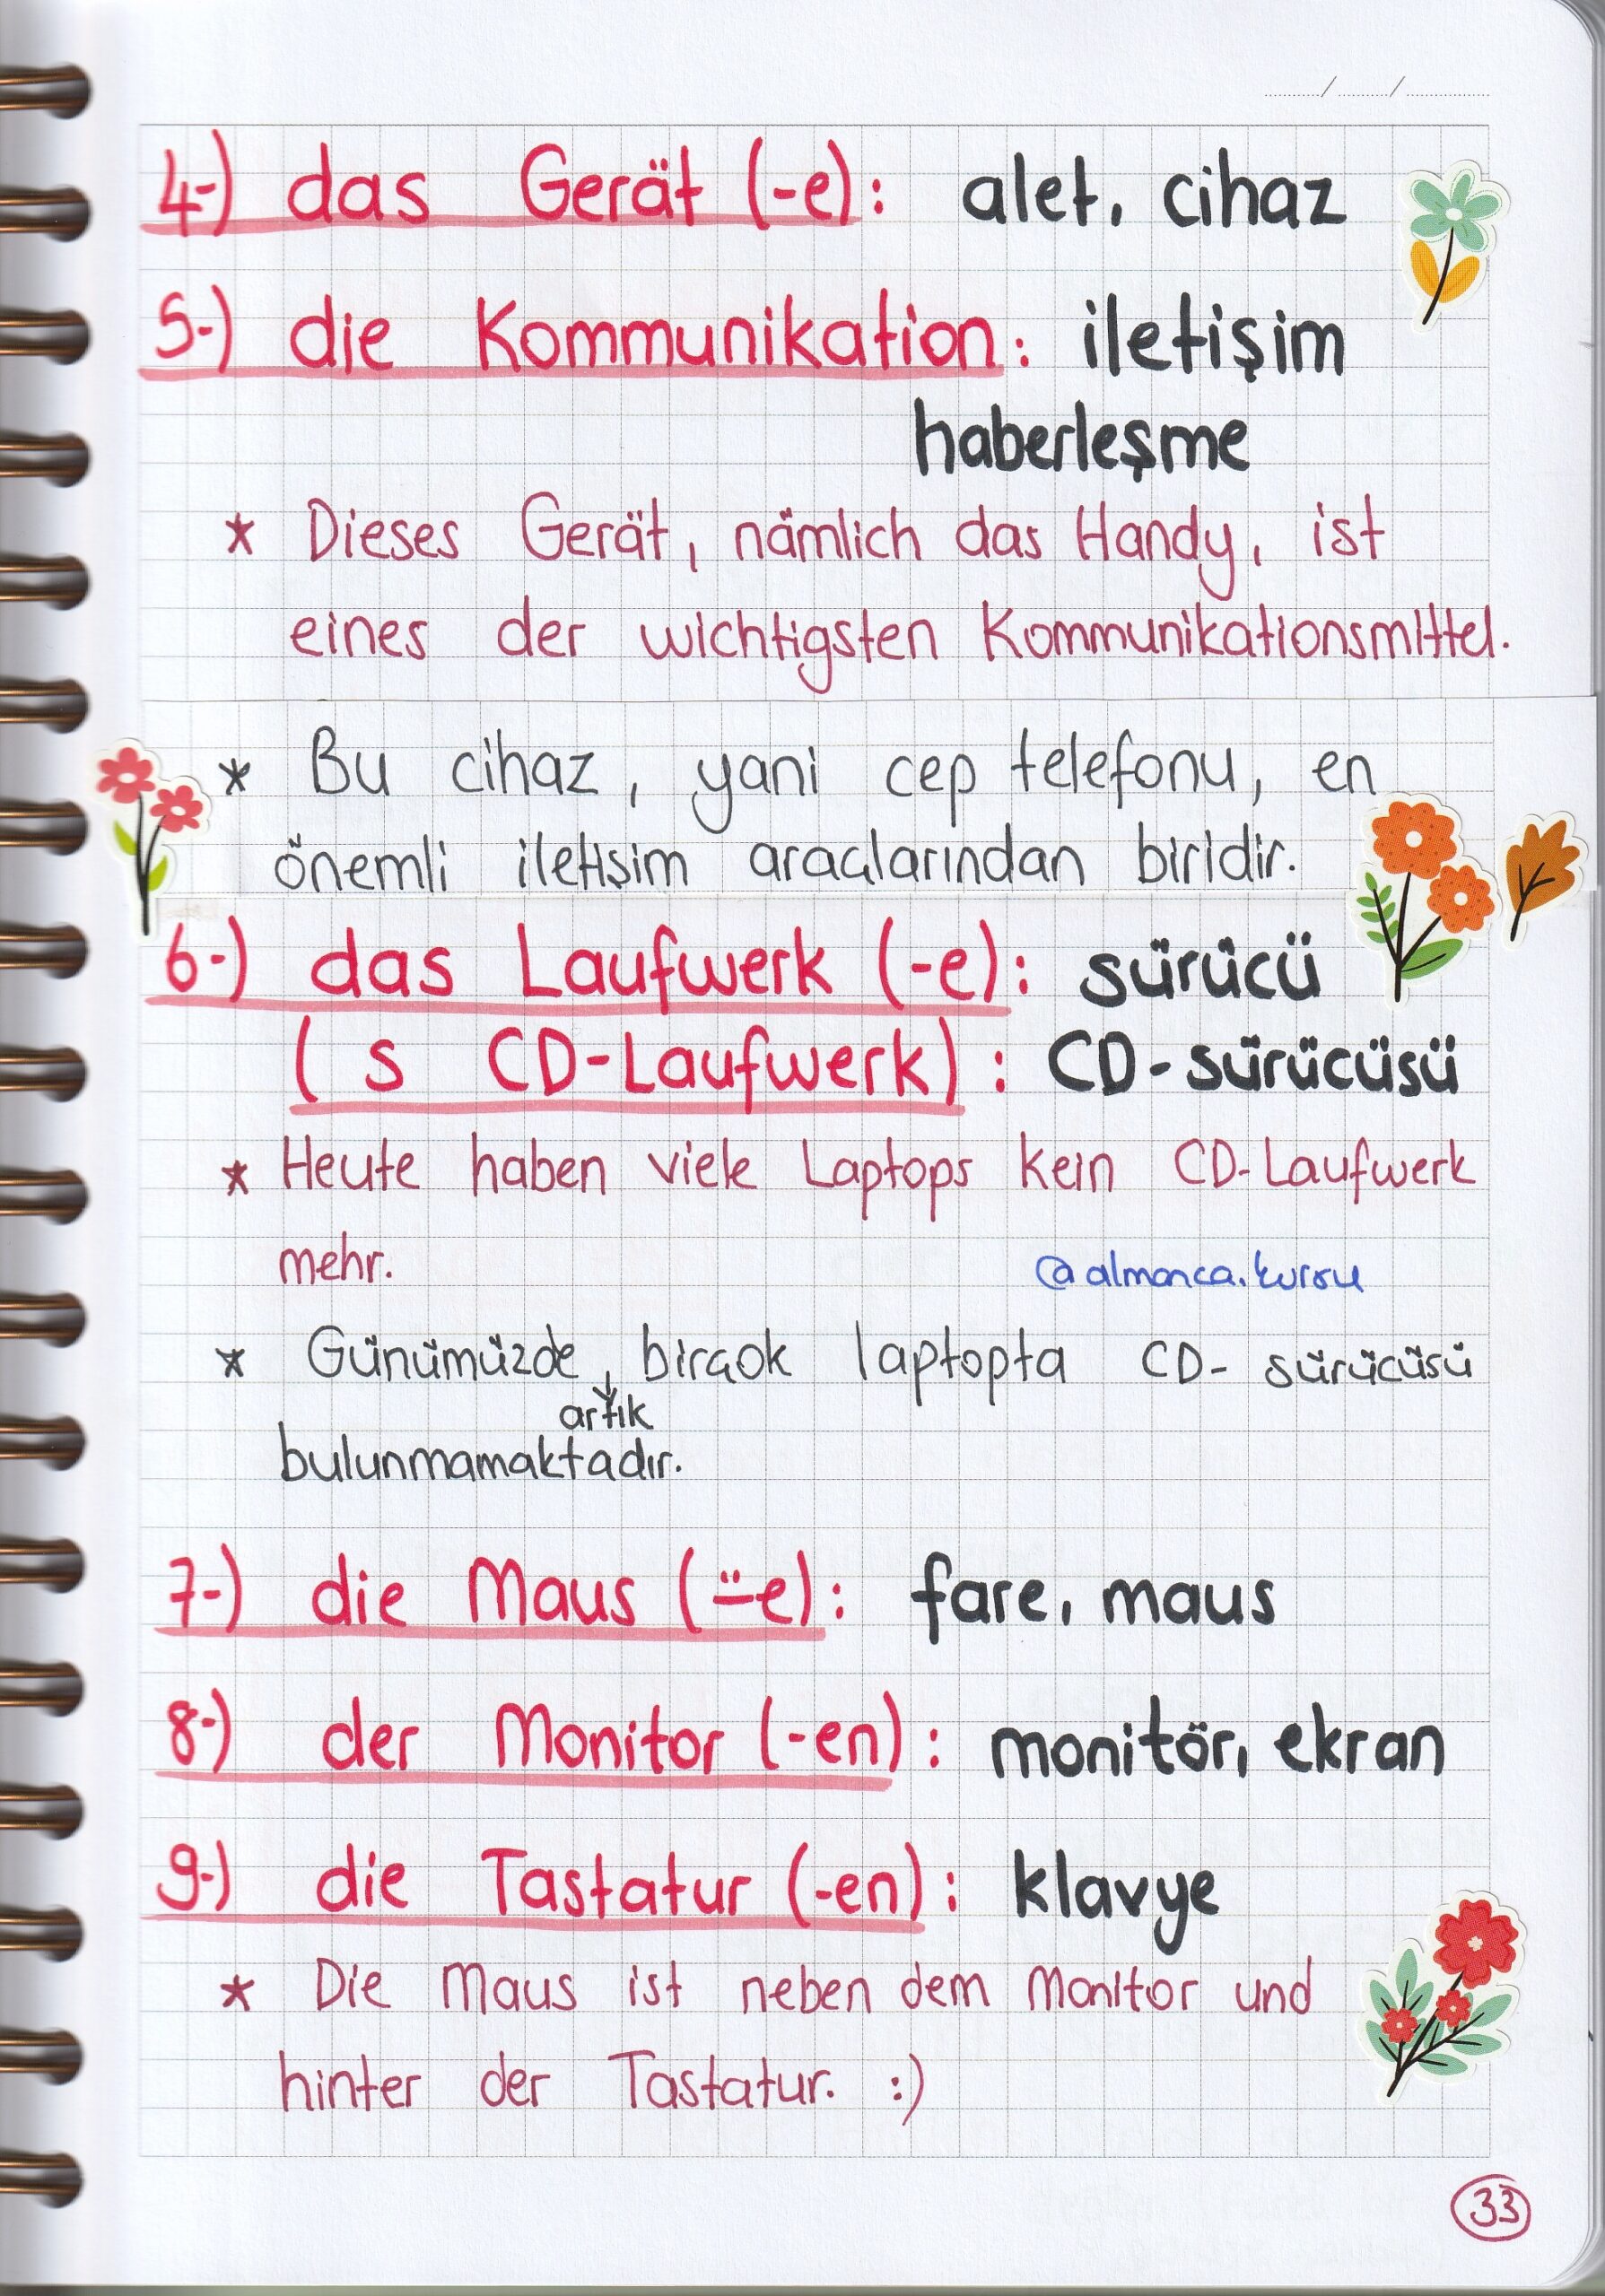 4-) das Gerät (-e): alet, cihaz
5-) die Kommunikation: iletişim
haberleşme
* Dieses Gerät, nämlich das Handy, ist
eines der wichtigsten Kommunikationsmittel.
* Bu cihaz, yani cep telefonu, en
önemli iletişim araçlarından biridir.
6-) das Laufwerk (-e): sürücü
( s CD-Laufwerk) : CD-sürücüsü
* Heute haben viele Laptops kein CD-Laufwerk
mehr.
@almanca.kursu
* Günümüzde, birçok laptopta CD- sürücüsü
artık
bulunmamaktadır.
7-) die Maus (¨-e): fare, maus
8-) der Monitor (-en): monitör, ekran
9-) die Tastatur (-en): klavye
* Die Maus ist neben dem Monitor und
hinter der Tastatur. :)
33